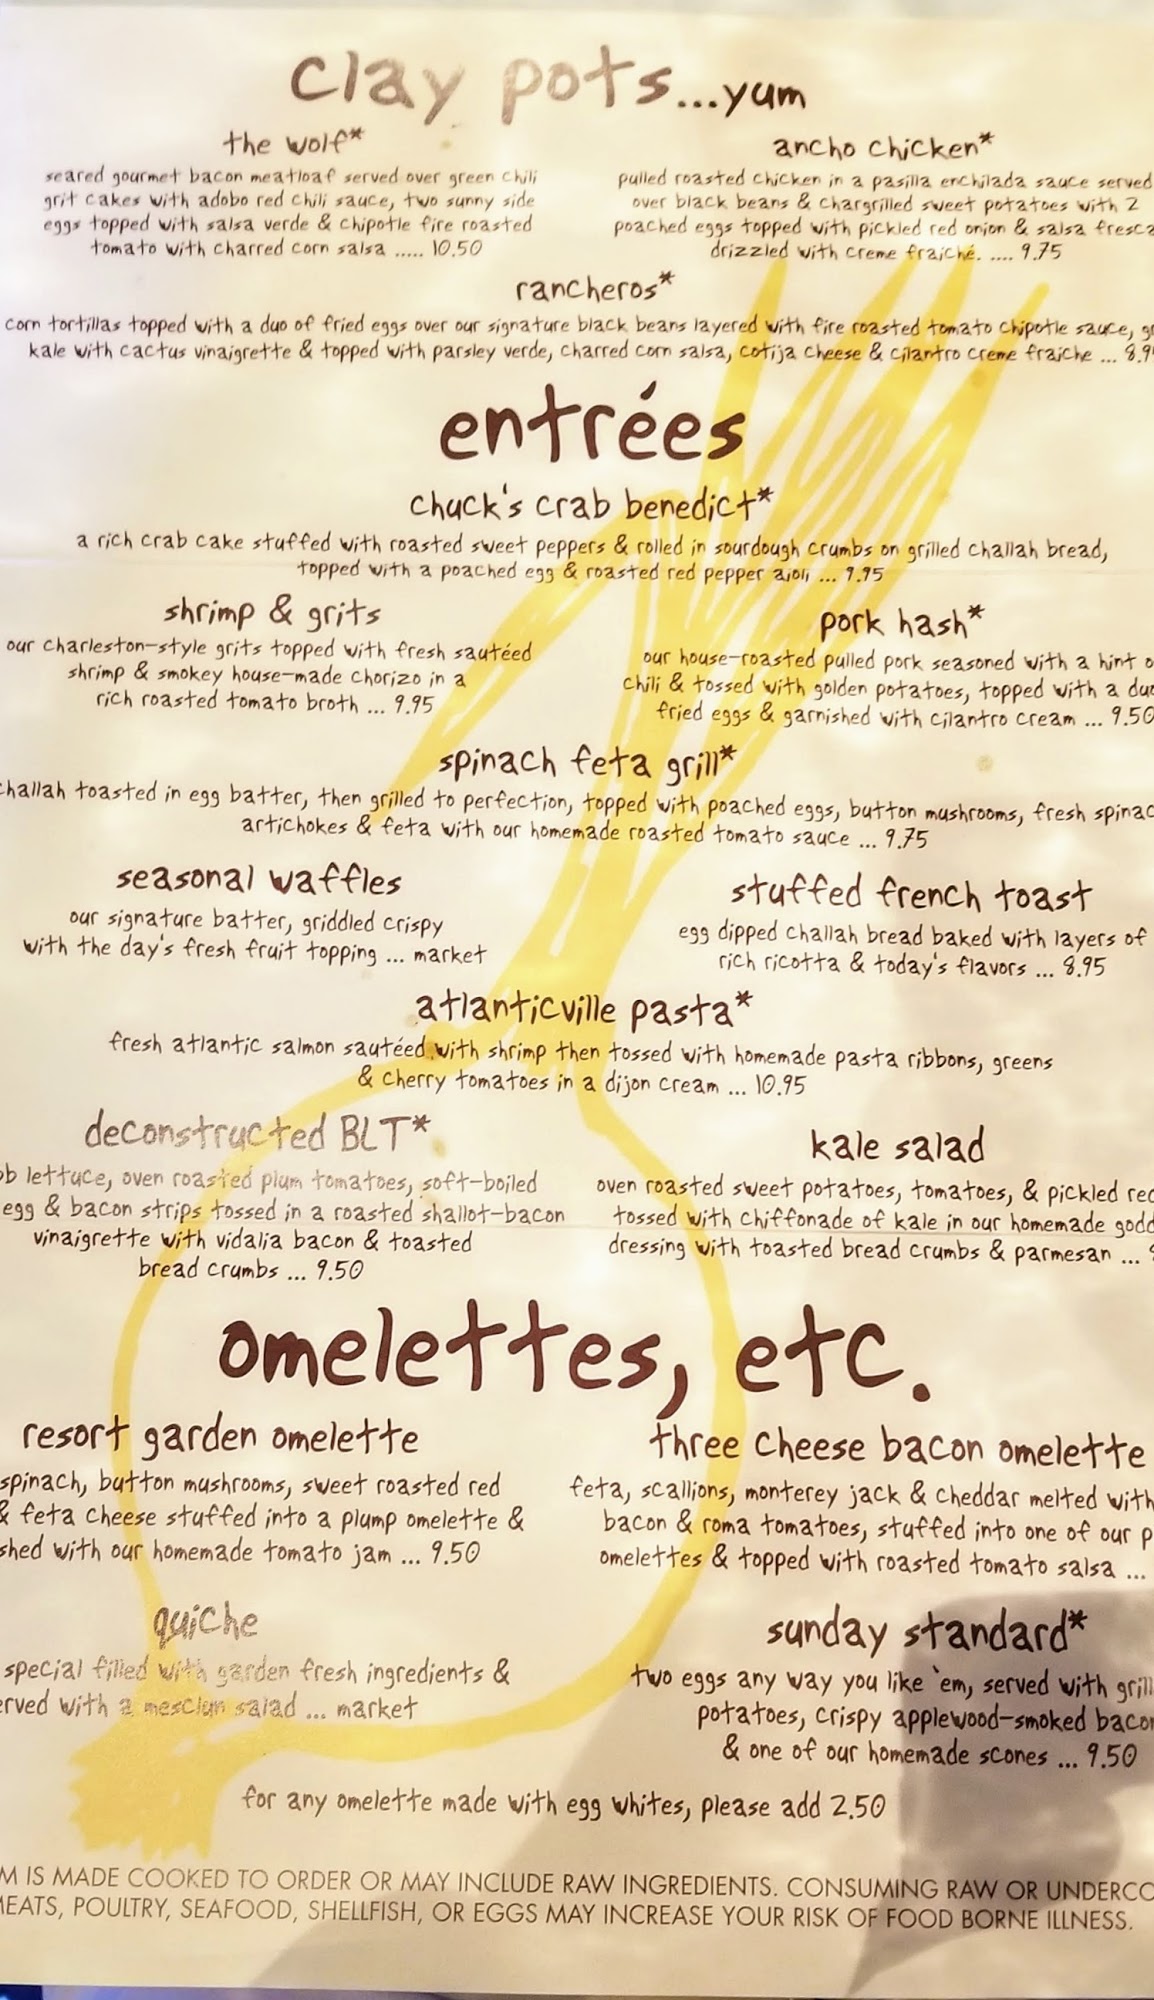 clay pots...yum
the wolf*
seared gourmet bacon meatloaf served over green chili
grit cakes with adobo red chili sauce, two sunny side
eggs topped with salsa verde & chipotle fire roasted
tomato with charred corn salsa ..... 10.50
ancho chicken*
pulled roasted chicken in a pasilla enchilada sauce served
over black beans & chargrilled sweet potatoes with 2
poached eggs topped with pickled red onion & salsa fresca
drizzled with creme fraiché. .... 9.75
rancheros*
corn tortillas topped with a duo of fried eggs over our signature black beans layered with fire roasted tomato chipotle sauce,
kale with cactus vinaigrette & topped with parsley verde, charred corn salsa, cotija cheese & cilantro creme fraiche ... 8.9
entrées
chuck's crab benedict*
a rich crab cake stuffed with roasted sweet peppers & rolled in sourdough crumbs on grilled challah bread,
topped with a poached egg & roasted red pepper aioli ... 9.95
shrimp & grits
our charleston-style grits topped with fresh sautéed
shrimp & smokey house-made chorizo in a
rich roasted tomato broth ... 9.95
pork hash*
our house-roasted pulled pork seasoned with a hint o
chili & tossed with golden potatoes, topped with a duo
fried eggs & garnished with cilantro cream ... 9.50
spinach feta grill*
challah toasted in egg batter, then grilled to perfection, topped with poached eggs, button mushrooms, fresh spinac
artichokes & feta with our homemade roasted tomato sauce ... 9.75
seasonal waffles
our signature batter, griddled crispy
with the day's fresh fruit topping ... market
stuffed french toast
egg dipped challah bread baked with layers of
rich ricotta & today's flavors ... 8.95
atlanticville pasta*
fresh atlantic salmon sautéed with shrimp then tossed with homemade pasta ribbons, greens
& cherry tomatoes in a dijon cream ... 10.95
deconstructed BLT*
lettuce, oven roasted plum tomatoes, soft-boiled
egg & bacon strips tossed in a roasted shallot-bacon
vinaigrette with vidalia bacon & toasted
bread crumbs ... 9.50
kale salad
oven roasted sweet potatoes, tomatoes, & pickled red
tossed with chiffonade of kale in our homemade godd
dressing with toasted bread crumbs & parmesan ...
omelettes, etc.
resort garden omelette
spinach, button mushrooms, sweet roasted red
& feta cheese stuffed into a plump omelette &
shed with our homemade tomato jam ... 9.50
three cheese bacon omelette
feta, scallions, monterey jack & cheddar melted with
bacon & roma tomatoes, stuffed into one of our p
omelettes & topped with roasted tomato salsa ...
quiche
special filled with garden fresh ingredients &
erved with a mesclun salad ... market
sunday standard*
two eggs any way you like 'em, served with grill
potatoes, crispy applewood-smoked bacon
& one of our homemade scones ... 9.50
for any omelette made with egg whites, please add 2.50
M IS MADE COOKED TO ORDER OR MAY INCLUDE RAW INGREDIENTS. CONSUMING RAW OR UNDERCO
MEATS, POULTRY, SEAFOOD, SHELLFISH, OR EGGS MAY INCREASE YOUR RISK OF FOOD BORNE ILLNESS.